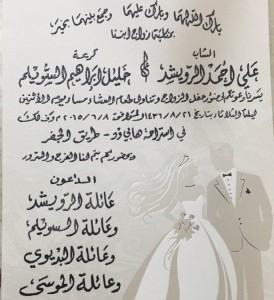 بارك الله لهما وبارك عليهما وجمع بينهما بخير
بمناسبة زواج ابننا
الشاب
كريمة
علي احمد الرويشد
خليل ابراهيم السويلم
يسرنا دعوتكم لحضور حفل الزواج وتناول طعام العشاء مساء يوم الأثنين
ليلة الثلاثاء بتاريخ ١٤٣٦/٨/٢١ الموافق ٢٠١٥/٦/٨ وذلك
في استراحة هابي دور - طريق الجفر
وبحضوركم يتم لنا الفرح والسرور
الداعون
عائلة الرويشد
وعائلة السويلم
وعائلة البديوي
وعائلة الموسى